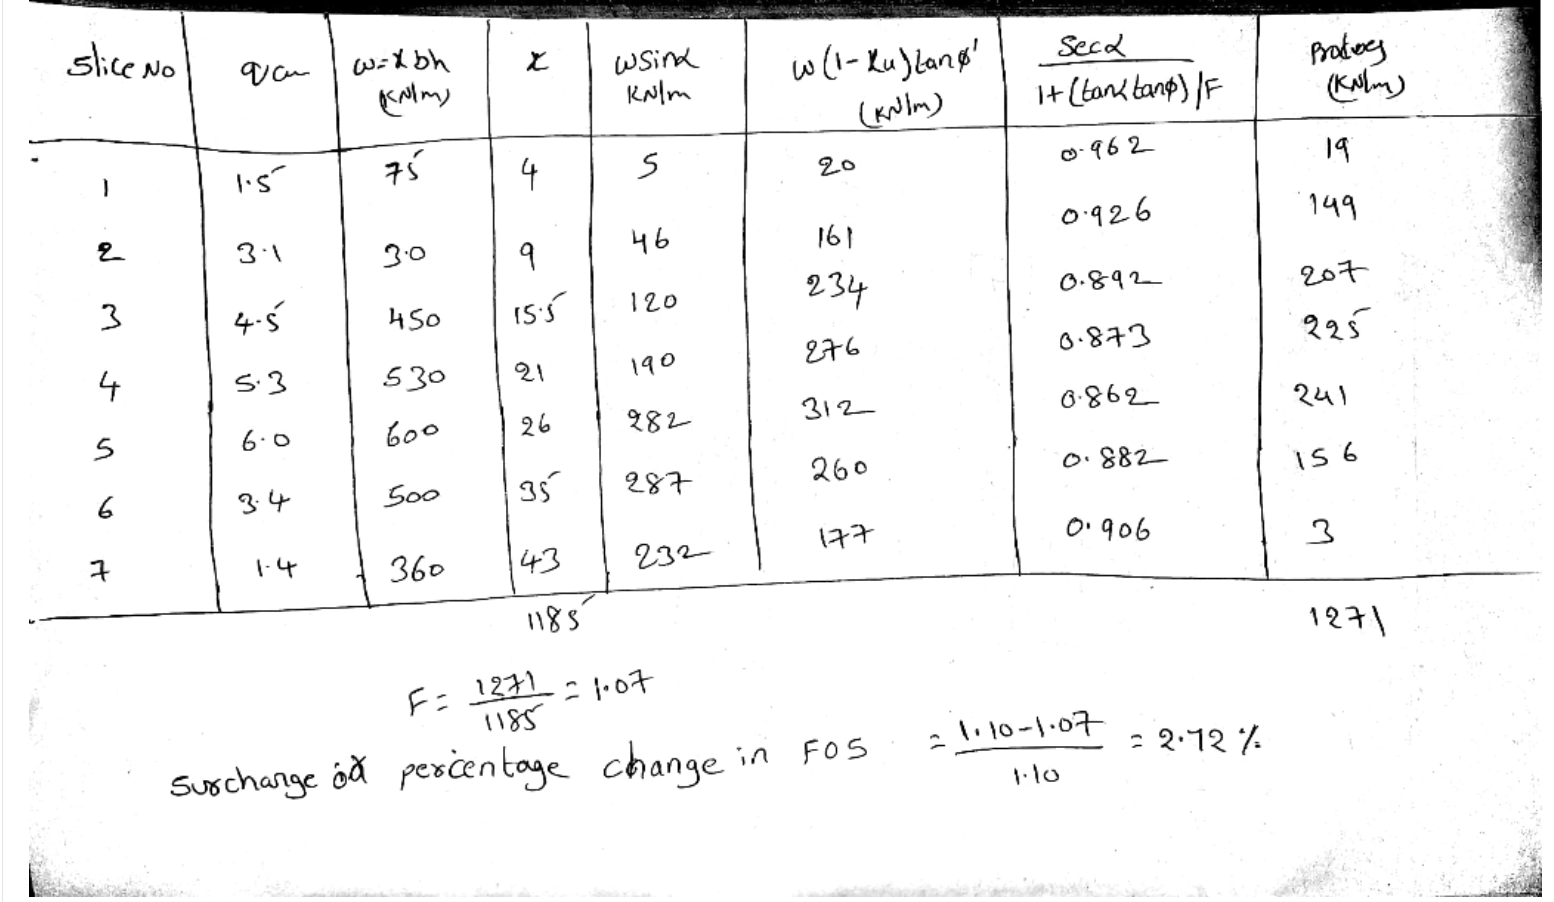 Slice No
w=γbh (KN/m)
α
wSinα KN/m
w(1-γu)tanφ' (KN/m)
Secα / 1+(tanα tanφ)/F
(KN/m)
1 1.5 75 4 5 20 0.962 19
2 3.1 3.0 9 46 161 0.926 149
3 4.5 450 15.5 120 234 0.892 207
4 5.3 530 21 190 276 0.873 225
5 6.0 600 26 282 312 0.862 241
6 3.4 500 35 287 260 0.882 156
7 1.4 360 43 232 177 0.906 3
1185 1271
F = 1271 / 1185 = 1.07
Surcharge percentage change in FOS = 1.10-1.07 / 1.10 = 2.72 %.